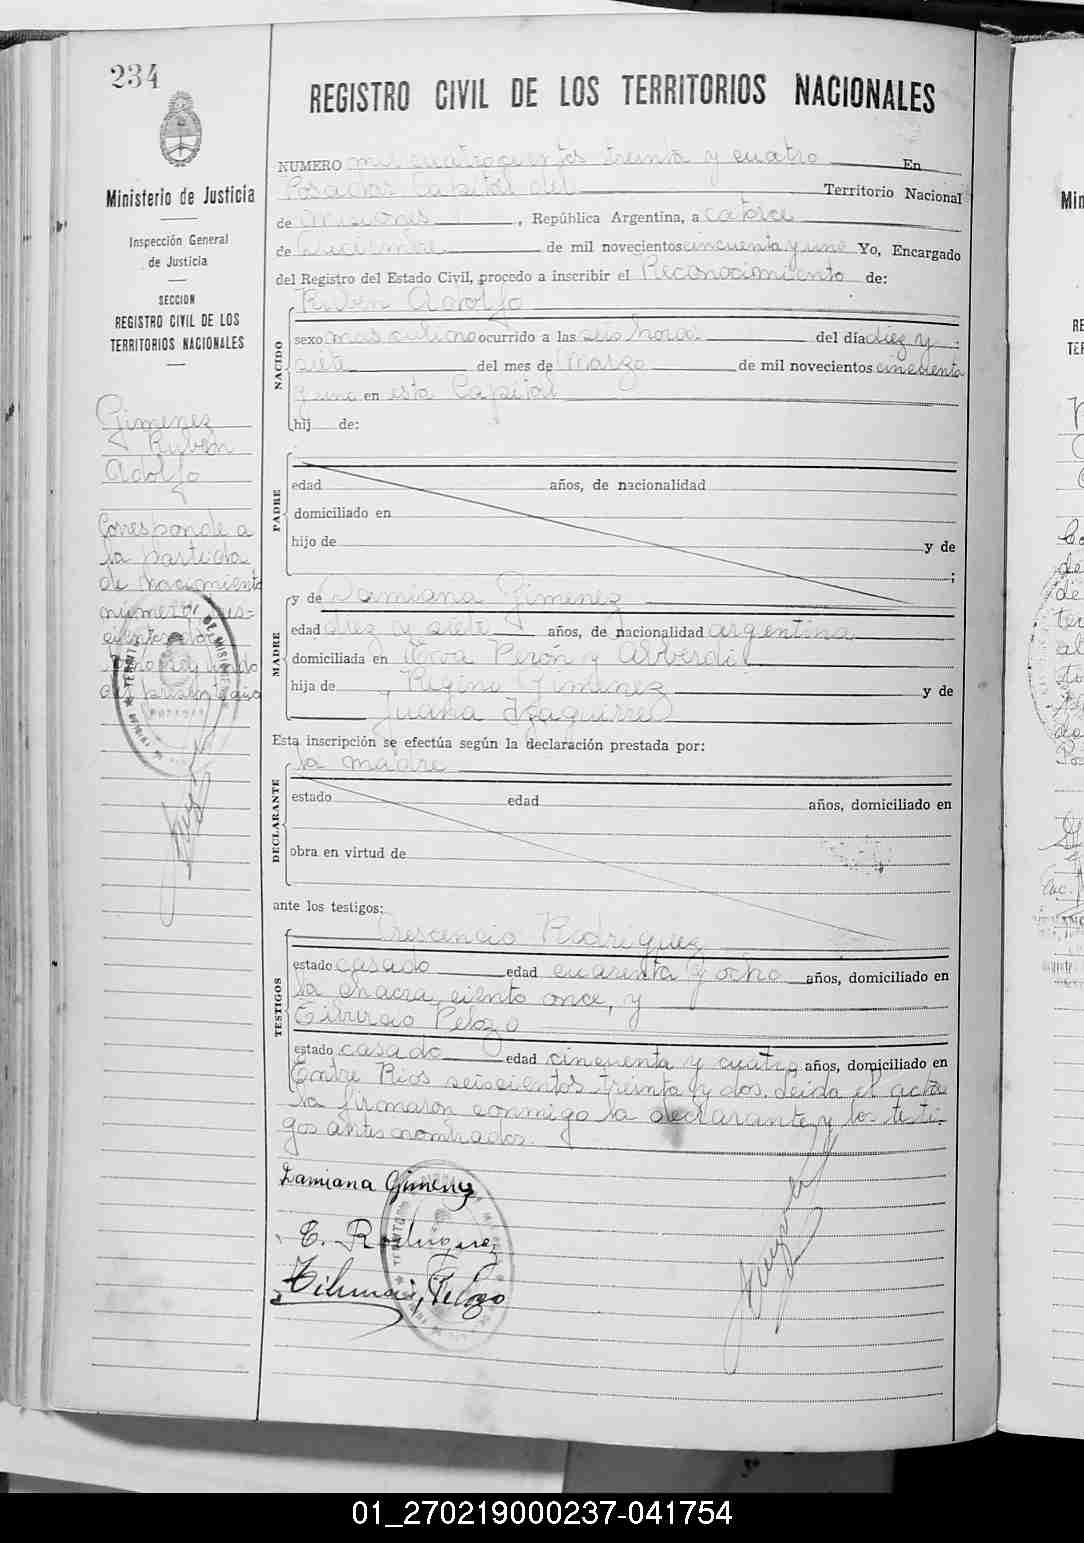 234
Ministerio de Justicia
Inspección General
de Justicia
SECCION
REGISTRO CIVIL DE LOS
TERRITORIOS NACIONALES
Gimenez
Rubén
Adolfo
Corresponde a
la partida
de nacimiento
número
REGISTRO CIVIL DE LOS TERRITORIOS NACIONALES
NUMERO mil cuatrocientos treinta y cuatro En
Posadas Capital del Territorio Nacional
de Misiones, República Argentina, a catorce
de Diciembre de mil novecientos cincuenta y uno Yo, Encargado
del Registro del Estado Civil, procedo a inscribir el Reconocimiento de:
Rubén Adolfo
NACIDO
sexo masculino ocurrido a las seis horas del día diez y
siete del mes de Marzo de mil novecientos cincuenta
y uno en esta Capital
hij de:
PADRE
edad años, de nacionalidad
domiciliado en
hijo de y de
;
MADRE
y de Damiana Gimenez
edad diez y siete años, de nacionalidad argentina
domiciliada en Eva Perón y Alverdi
hija de Regino Gimenez y de
Juana Yzaguirre
Esta inscripción se efectúa según la declaración prestada por:
la madre
DECLARANTE
estado edad años, domiciliado en
obra en virtud de
ante los testigos:
Crescencio Rodriguez
TESTIGOS
estado casado edad cuarenta y ocho años, domiciliado en
la chacra ciento once, y
Pelozo
estado casado edad cincuenta y cuatro años, domiciliado en
Entre Rios seiscientos treinta y dos. Leida el acta
la firmaron conmigo la declarante y los testi-
gos antes nombrados.
Damiana Gimenez
C. Rodriguez
Pelozo
01_270219000237-041754